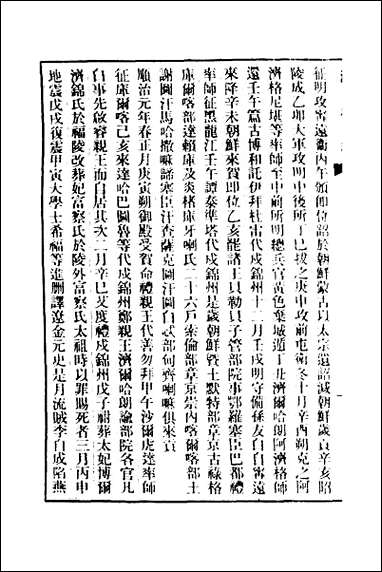 征明攻寧遠衞丙午頒即位詔於朝鮮蒙古以太宗遺詔減朝鮮歲貢辛亥昭
陵成乙卯大軍攻明中後所丁巳拔之庚申攻前屯衞冬十月辛酉朔克之阿
濟格尼堪等率師至中前所明總兵官黃色棄城遁丁丑濟哈朗阿濟格師
還壬午篇古博和託伊拜杜雷代戍錦州十二月壬戌明守備孫友白自寧遠
來降辛未朝鮮來賀即位乙亥罷諸王貝勒貝子管部院事鄂羅塞臣巴都禮
率師征黑龍江壬午譚泰準塔代戍錦州是歲朝鮮暨土默特部章京古祿格
庫爾喀部達賴庫及炎楮庫牙喇氏二十六戶索倫部章京崇內喀爾喀部土
謝圖汗馬哈撒嘛諦塞臣汗查薩克圖汗圖白忒部甸齊喇嘛俱來貢
順治元年春正月庚寅朔御殿受賀命禮親王代善勿拜甲午沙爾虎達率師
征庫爾喀己亥來達哈巴圖魯等代戍錦州鄭親王濟爾哈朗諭部院各官凡
白事先啟睿親王而自居其次二月辛巳艾度禮戍錦州戊子祔葬太妃博爾
濟錦氏於福陵改葬妃富察氏於陵外富察氏太祖時以罪賜死者三月丙申
地震戊戌復震甲寅大學士希福等進删譯遼金元史是月流賊李自成陷燕